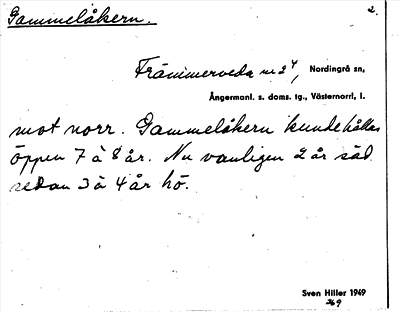 Gammelåkern. 2.
Främmerveda nr 2⁴, Nordingrå sn,
Ångermanl. s. doms. tg., Västernorrl, l.
mot norr. Gammelåkern kunde hållas
öppen 7 à 8 år. Nu vanligen 2 år säd
sedan 3 à 4 år hö.
Sven Hiller 1949
369